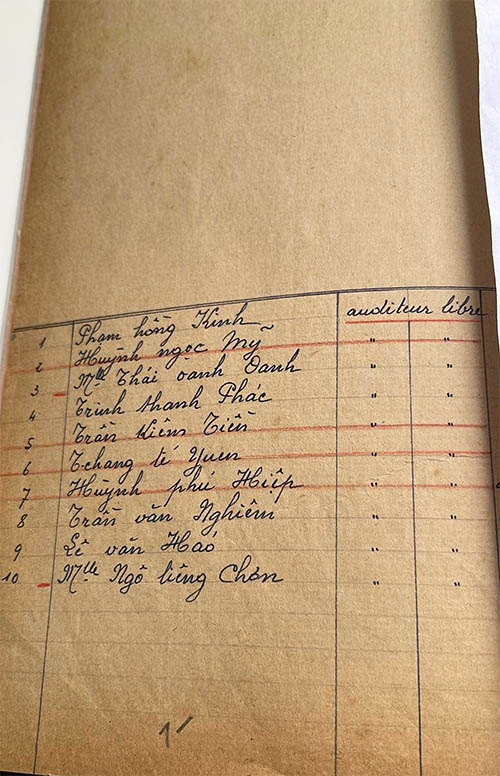 auditeur libre
1 Phạm hồng Kinh " "
2 Huỳnh ngọc Mỹ " "
3 Mlle Thái oanh Oanh " "
4 Trinh thanh Phác " "
5 Trần Kiêm Tiền " "
6 Tchang té Yuen " "
7 Huỳnh phú Hiệp " "
8 Trần văn Nghiêm " "
9 Lê văn Haó " "
10 Mlle Ngô liêng Chơn " "
1